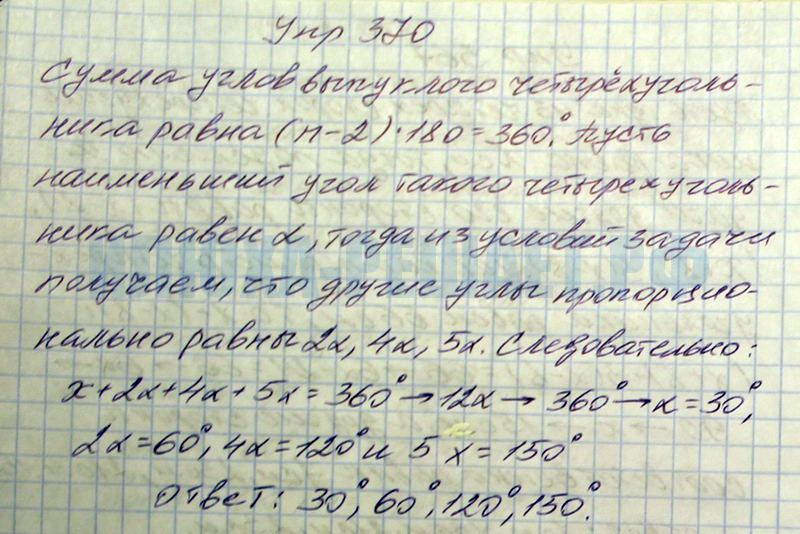 Упр 370
Сумма углов выпуклого четырёхуголь-
ника равна (n-2)·180=360°. Пусть
наименьший угол такого четырехуголь-
ника равен α, тогда из условий задачи
получаем, что другие углы пропорцио-
нально равны 2α, 4α, 5α. Следовательно:
x+2α+4α+5α=360°→12α→360°→α=30°,
2α=60°, 4α=120° и 5x=150°
ответ: 30°, 60°, 120°, 150°.